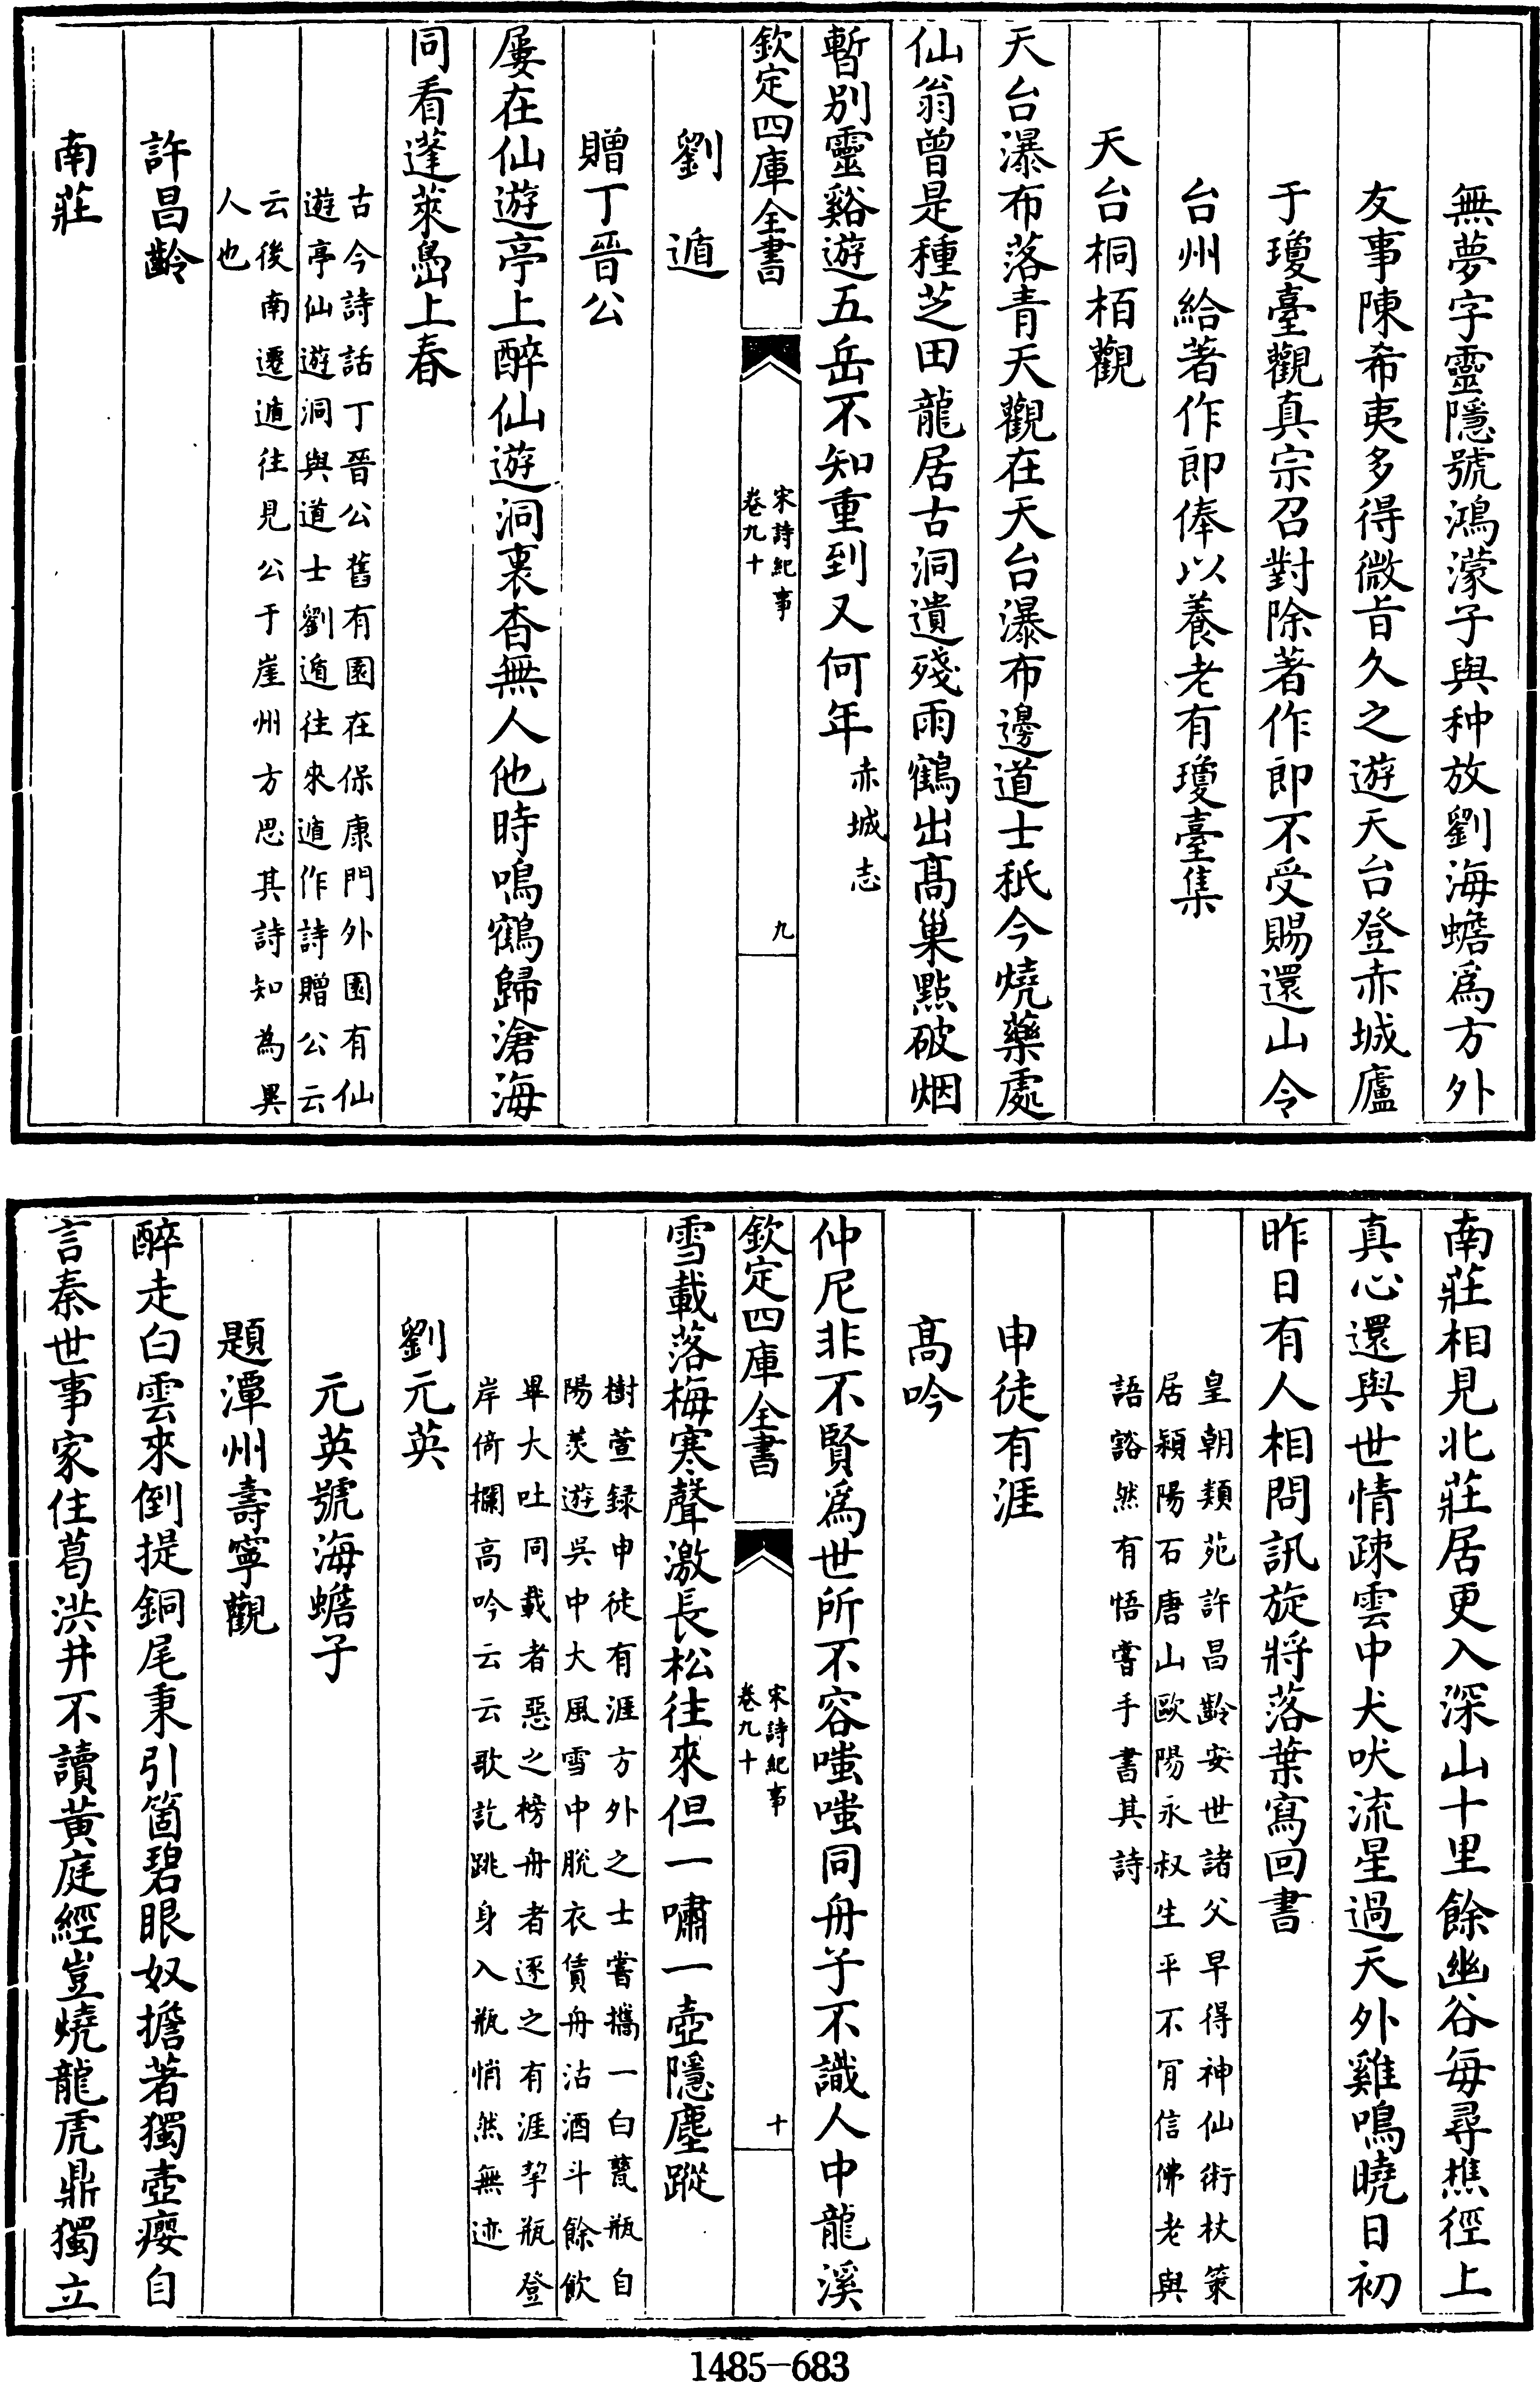 無夢字靈隱號鴻濛子與种放劉海蟾爲方外
友事陳希夷多得微旨久之遊天台登赤城廬
于瓊臺觀真宗召對除著作郎不受賜還山令
台州給著作郎俸以養老有瓊臺集
天台桐栢觀
天台瀑布落青天觀在天台瀑布邊道士秖今燒藥處
仙翁曾是種芝田龍居古洞遺殘雨鶴出髙巢點破烟
暫别靈谿遊五岳不知重到又何年赤城志
欽定四庫全書
宋詩紀事
卷九十
九
劉遁
贈丁晉公
屢在仙遊亭上醉仙遊洞裏杳無人他時鳴鶴歸滄海
同看蓬萊島上春
古今詩話丁晉公舊有園在保康門外園有仙
遊亭仙遊洞與道士劉遁往來遁作詩贈公云
云後南遷遁往見公于崖州方思其詩知為異
人也
許昌齡
南莊
南莊相見北莊居更入深山十里餘幽谷每尋樵徑上
真心還與世情疎雲中犬吠流星過天外雞鳴曉日初
昨日有人相問訊旋將落葉寫回書
皇朝類苑許昌齡安世諸父早得神仙術杖策
居潁陽石唐山歐陽永叔生平不肎信佛老與
語豁然有悟嘗手書其詩
申徒有涯
髙吟
仲尼非不賢爲世所不容嗤嗤同舟子不識人中龍溪
欽定四庫全書
宋詩紀事
卷九十
十
雪載落梅寒聲激長松往來但一嘯一壺隱塵蹤
樹萱録申徒有涯方外之士嘗攜一白甆瓶自
陽羨遊吳中大風雪中脱衣賃舟沽酒斗餘飲
畢大吐同載者惡之榜舟者逐之有涯挈瓶登
岸倚欄高吟云云歌訖跳身入瓶悄然無迹
劉元英
元英號海蟾子
題潭州壽寧觀
醉走白雲來倒提銅尾秉引箇碧眼奴擔著獨壺癭自
言秦世事家住葛洪井不讀黃庭經豈燒龍虎鼎獨立
1485-683